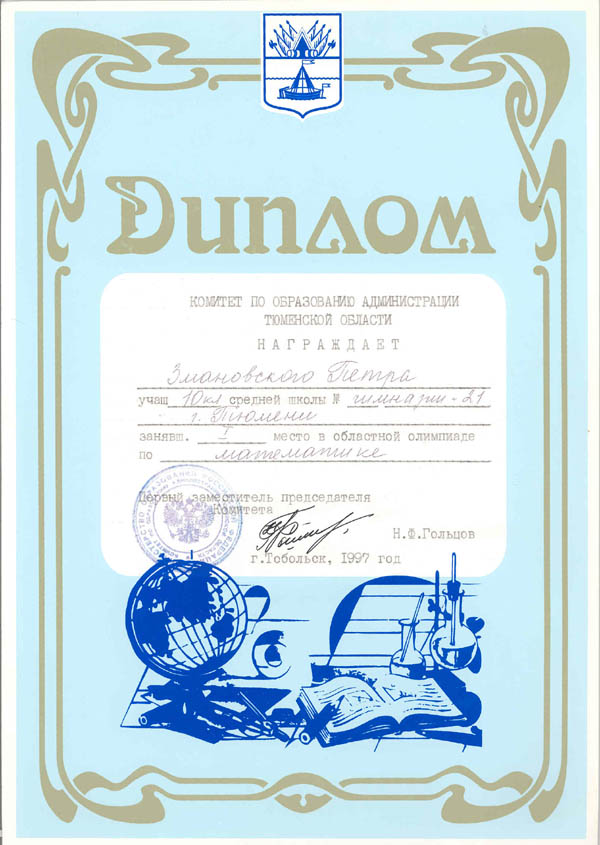 Диплом
КОМИТЕТ ПО ОБРАЗОВАНИЮ АДМИНИСТРАЦИИ
ТЮМЕНСКОЙ ОБЛАСТИ
НАГРАЖДАЕТ
Змановского Петра
учащ 10кл средней школы № гимнази-21
г. Тюмени
занявш. I место в областной олимпиаде
по математике
Первый заместитель председателя
Комитета
Н.Ф.Гольцов
г.Тобольск, 1997 год